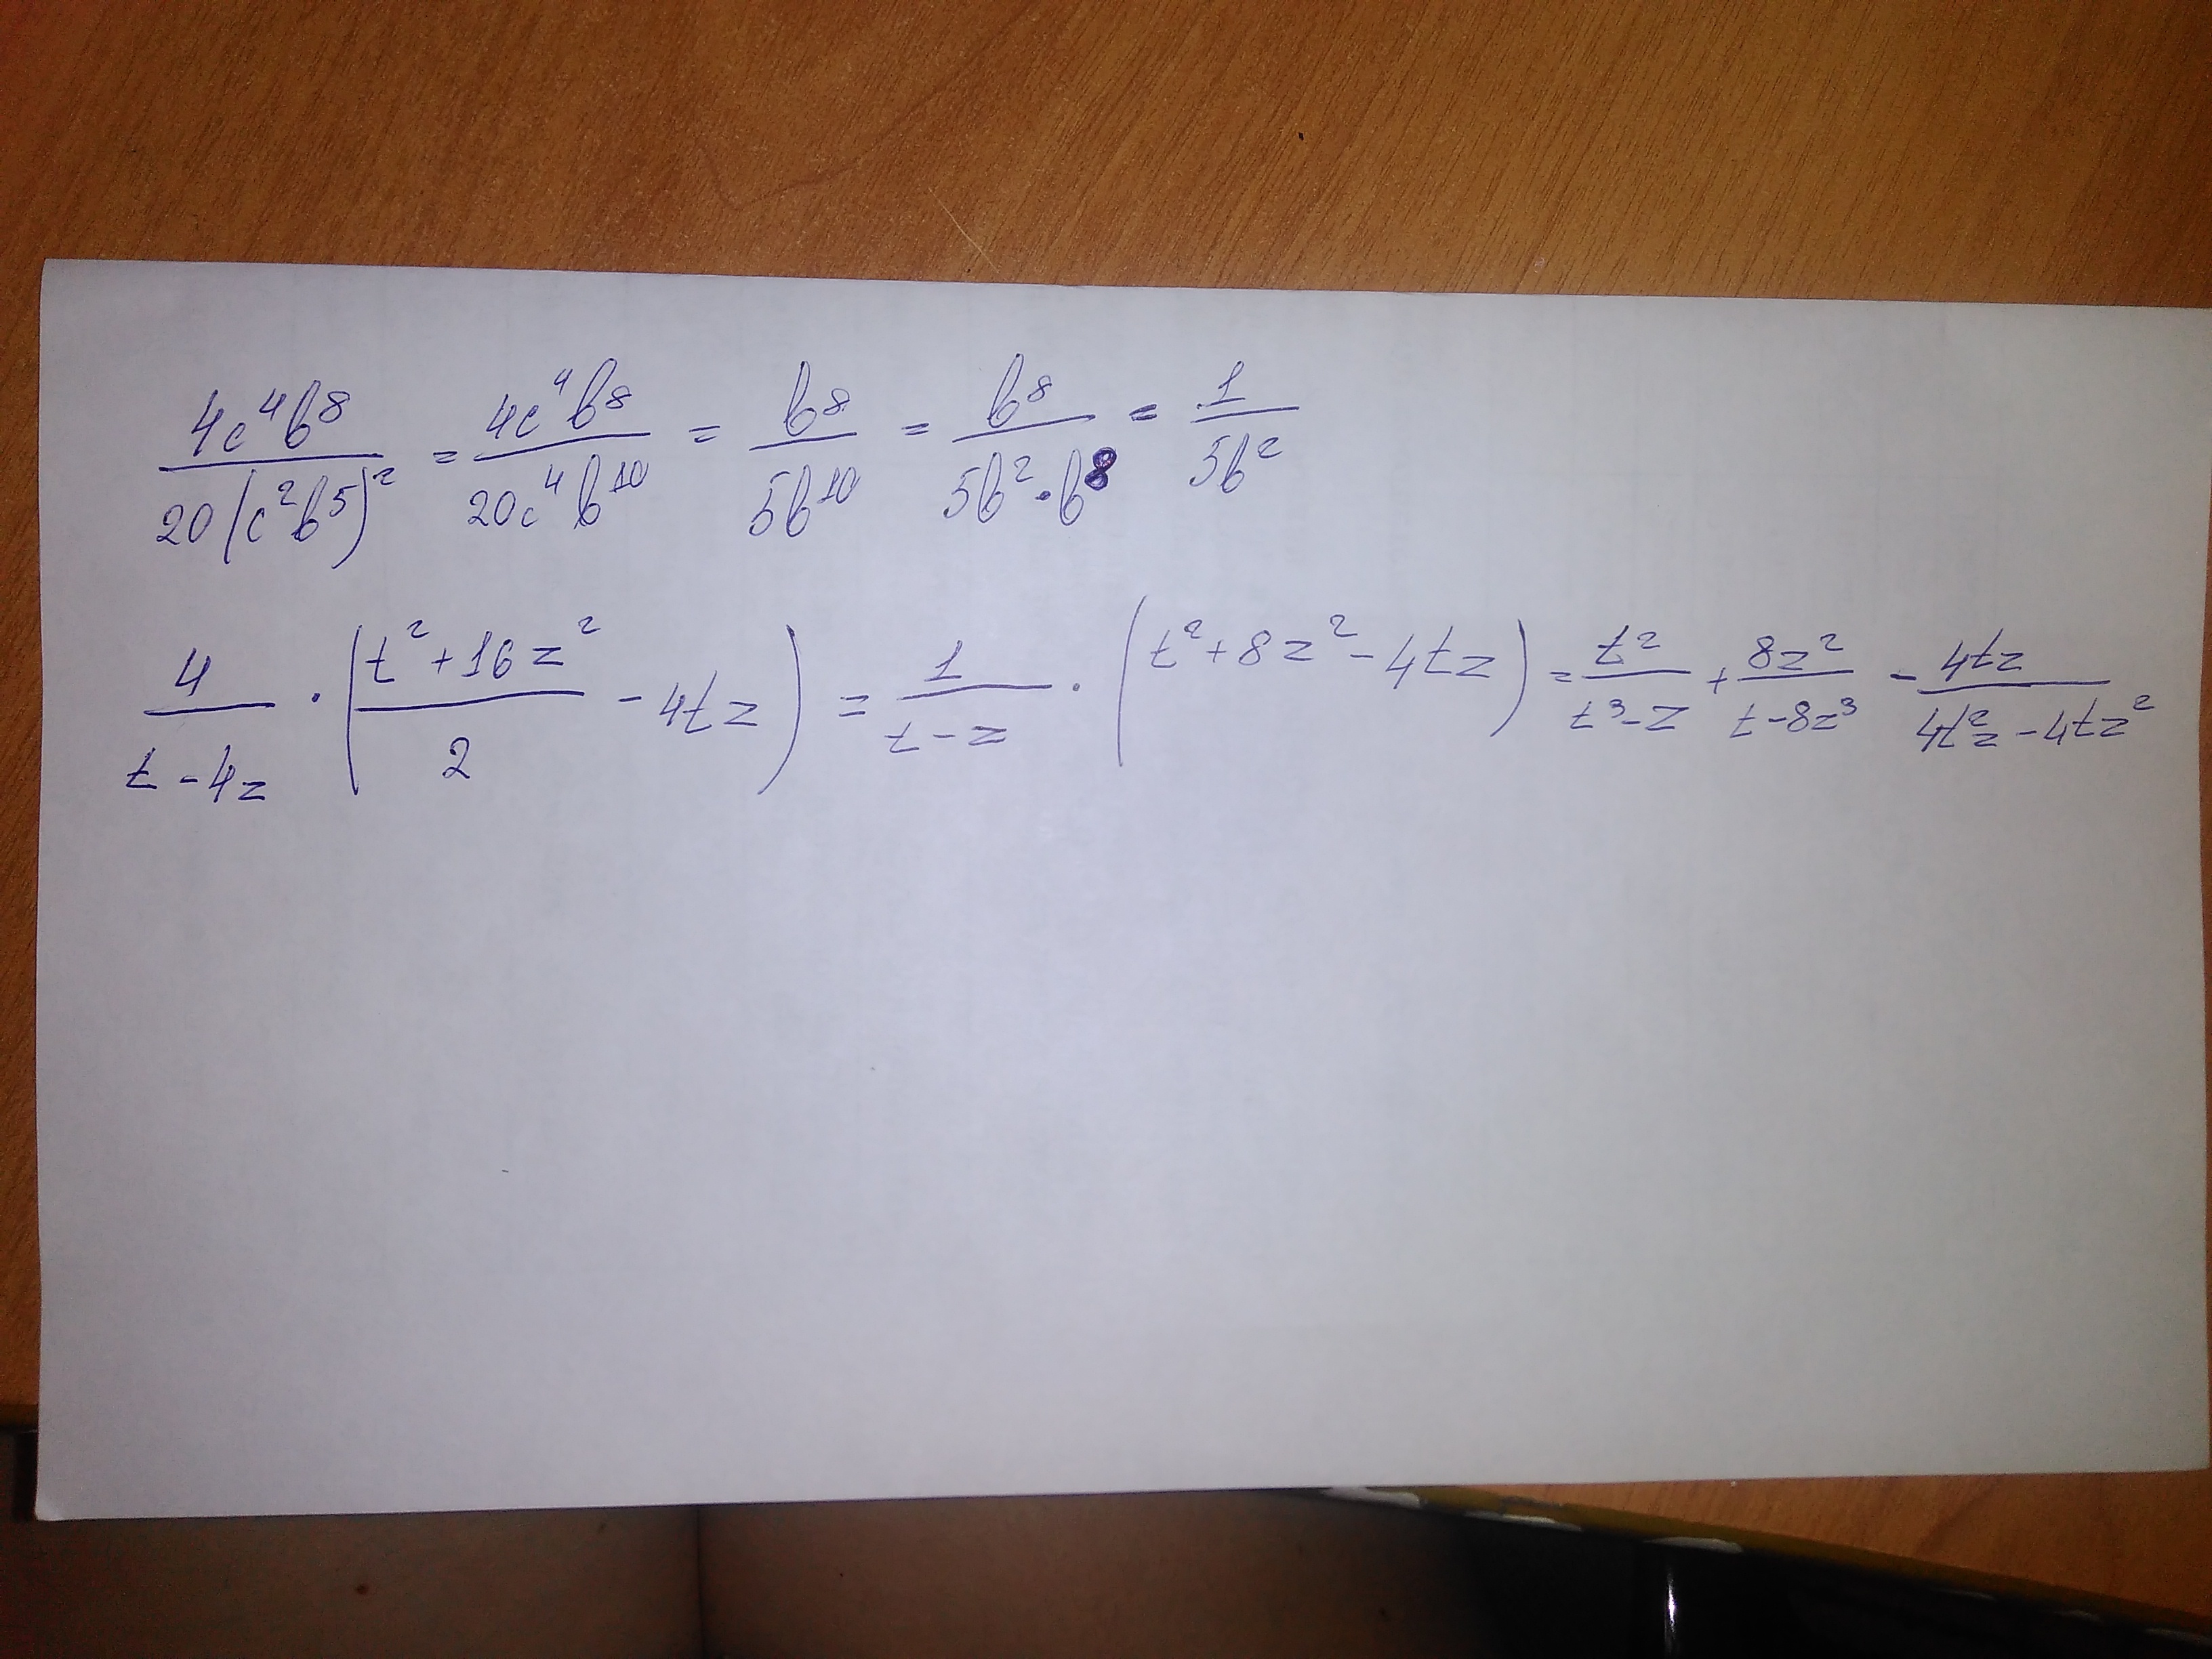 4c⁴b⁸/20(c²b⁵)² = 4c⁴b⁸/20c⁴b¹⁰ = b⁸/5b¹⁰ = b⁸/5b²·b⁸ = 1/5b²
4/(t-4z) · ((t²+16z²)/2 - 4tz) = 1/(t-z) · (t²+8z²-4tz) = t²/(t³-z) + 8z²/(t-8z³) - 4tz/(4t²z-4tz²)